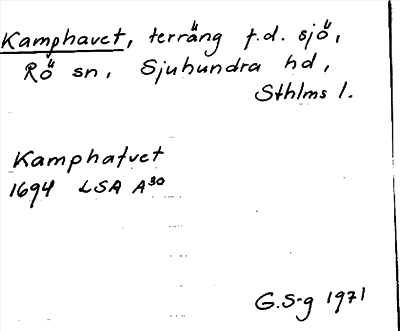 Kamphavet, terräng f.d. sjö,
Rö sn, Sjuhundra hd,
Sthlms l.
Kamphafvet
1694 LSA A30
G.S-g 1971